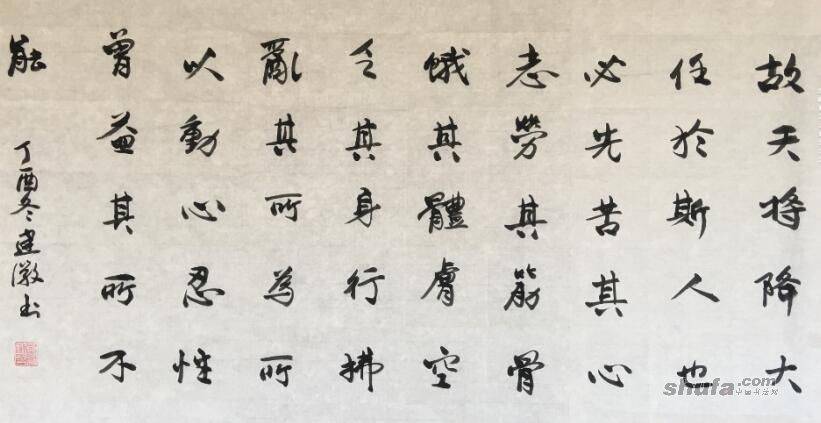 故天将降大
任於斯人也
必先苦其心
志勞其筋骨
餓其體膚空
乏其身行拂
亂其所為所
以動心忍性
曾益其所不
能
丁酉冬建书
shufa.com
中国书法网